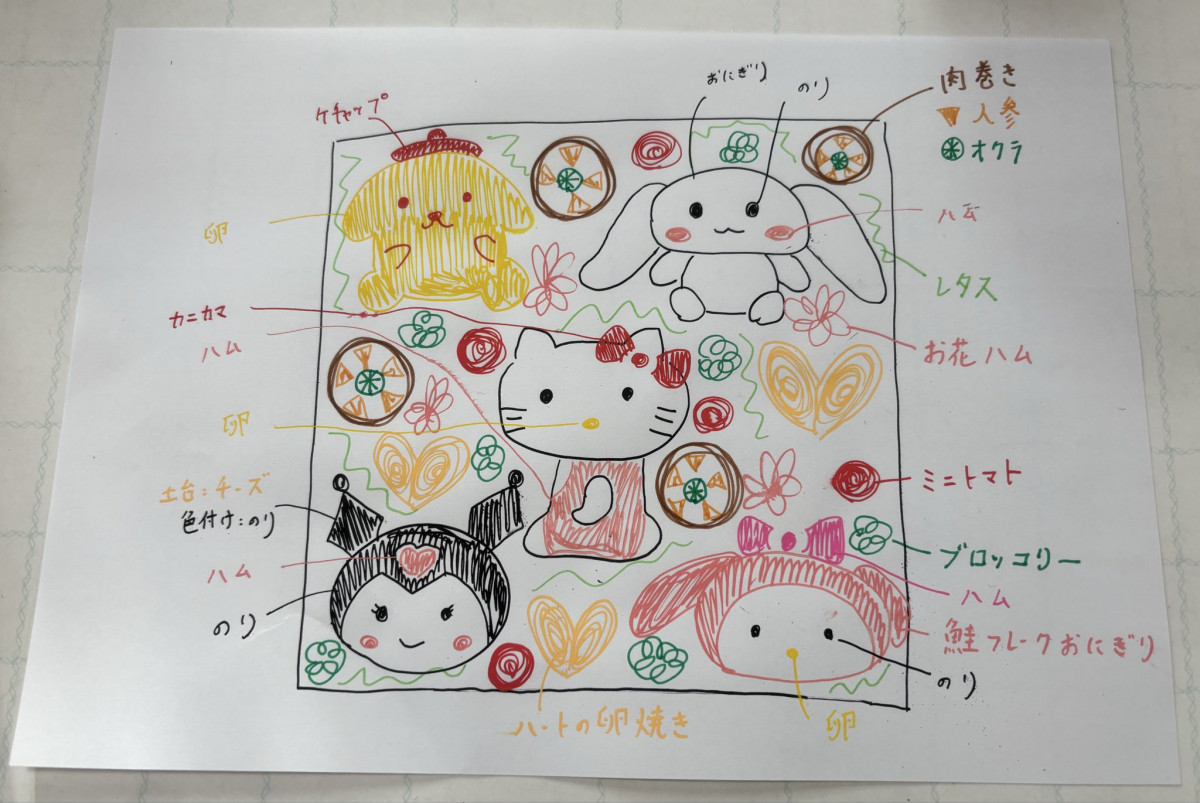 おにぎり
のり
肉巻き
人参
オクラ
ケチャップ
卵
ハム
レタス
カニカマ
ハム
お花ハム
卵
ミニトマト
土台:チーズ
色付け:のり
ブロッコリー
ハム
ハム
のり
鮭フレークおにぎり
のり
ハートの卵焼き
卵